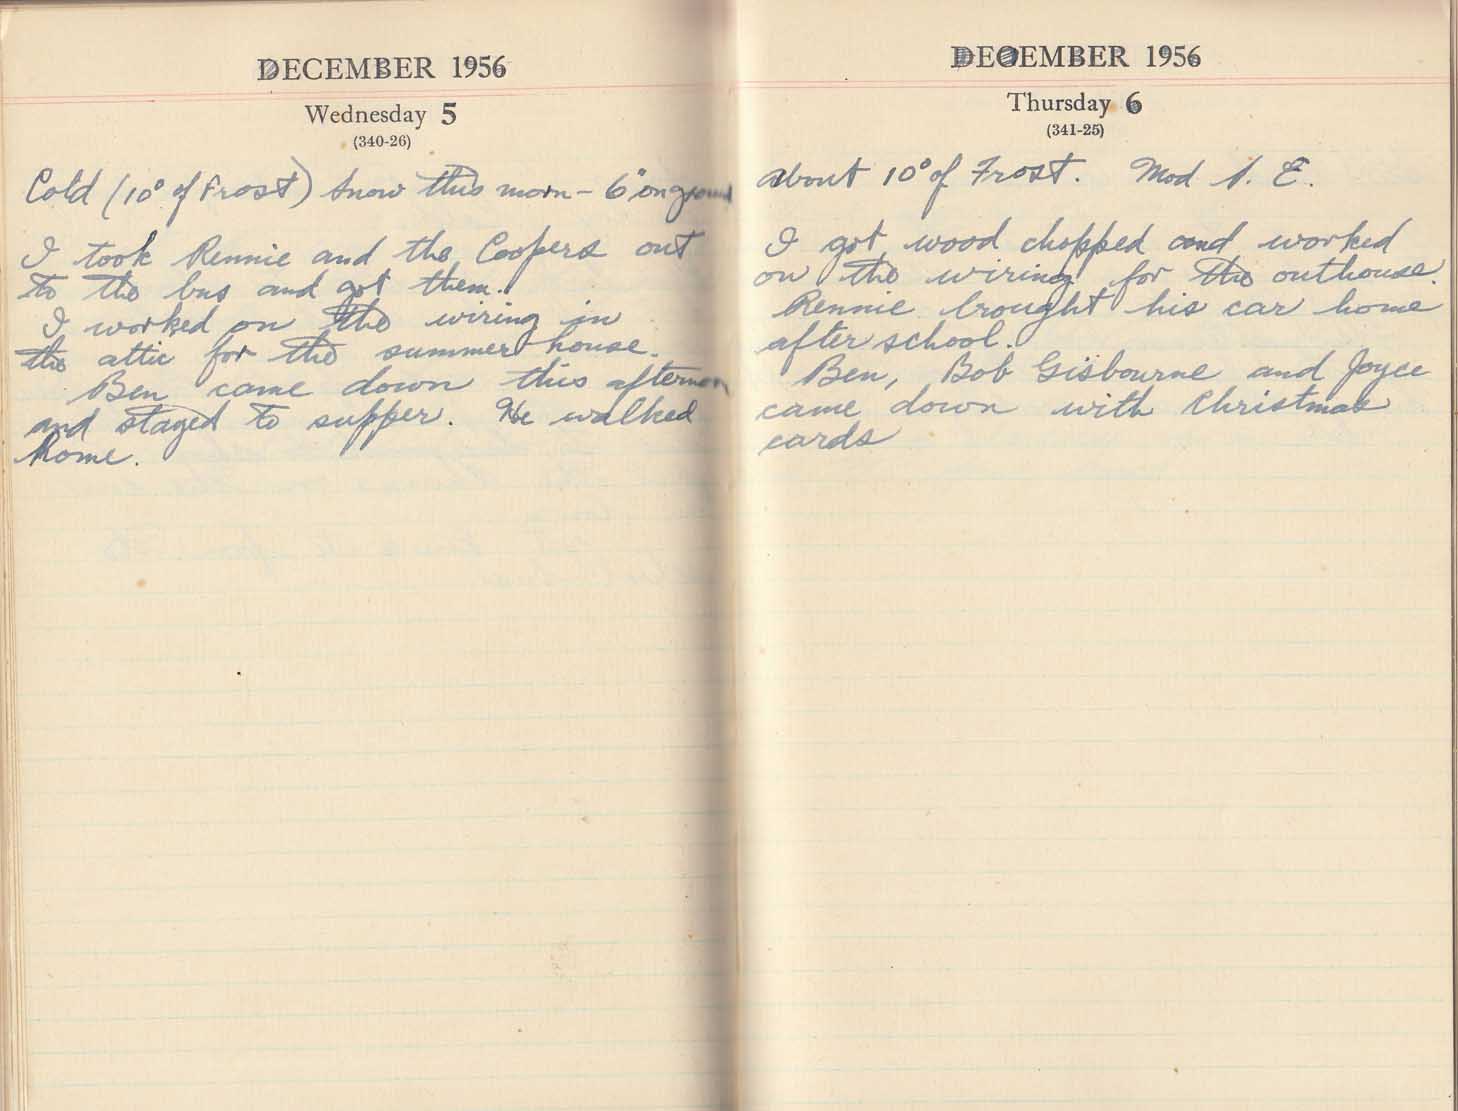 DECEMBER 1956
Wednesday 5
(340-26)
Cold (10° of Frost) Snow this morn - 6" on ground
I took Rennie and the Coopers out
to the bus and got them.
I worked on the wiring in
the attic for the summer house.
Ben came down this afternoon
and stayed to supper. He walked
home.
DECEMBER 1956
Thursday 6
(341-25)
about 10° of Frost. Mod S. E.
I got wood chopped and worked
on the wiring for the outhouse.
Rennie brought his car home
after school.
Ben, Bob Gisbourne and Joyce
came down with Christmas
cards